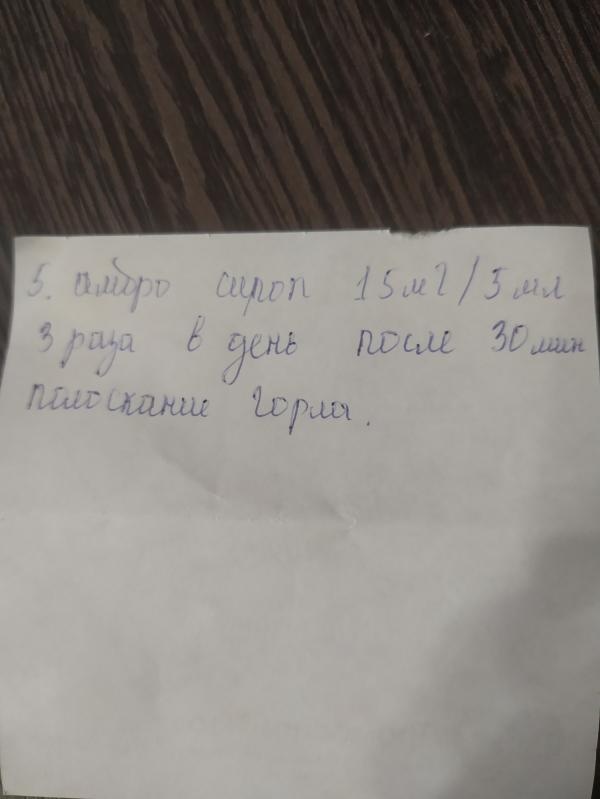 5. амбро сироп 15мг/5мл
3 раза в день после 30мин
полоскание горла.